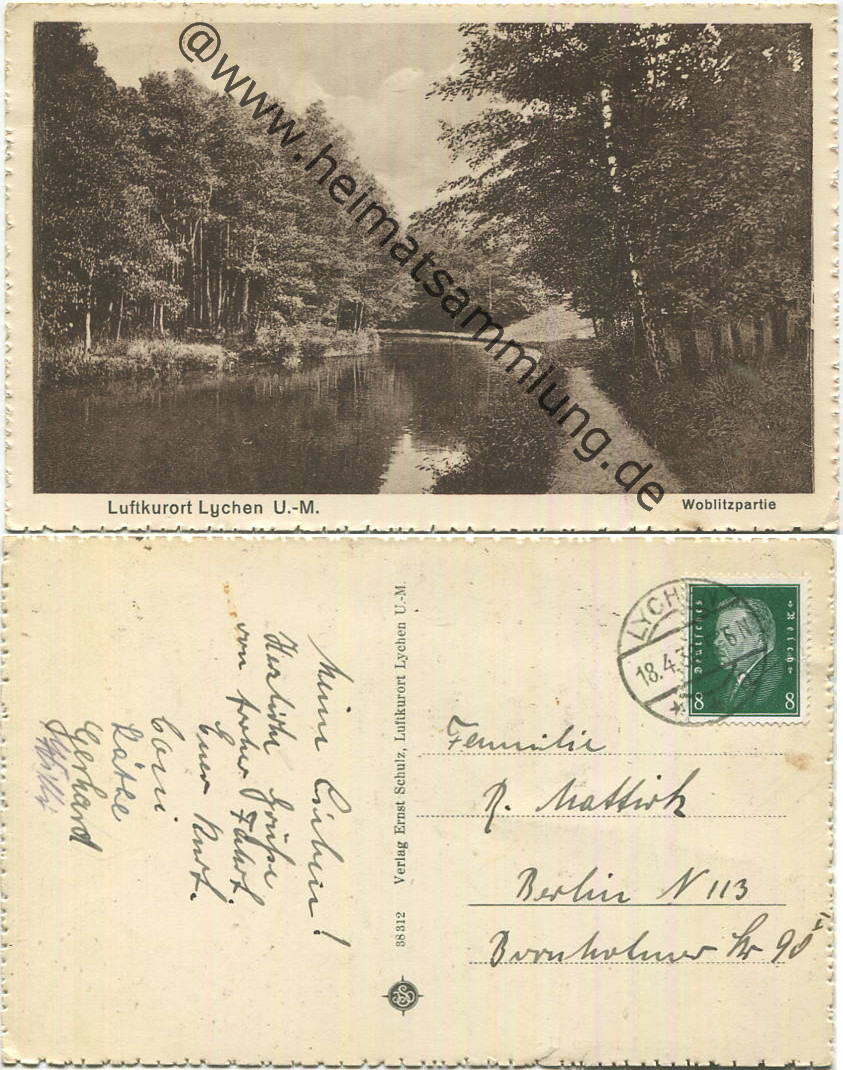 @www.heimatsammlung.de
Luftkurort Lychen U.-M.
Woblitzpartie
Meine Lieben!
Herzliche Grüße
von froher Fahrt
Euer Kurt.
Käthe
Gerhard
Willi
38312 Verlag Ernst Schulz, Luftkurort Lychen U.-M.
LYCHEN
18.4.3
Deutsches Reich
8 8
Familie
R. Mattick
Berlin N 113
Bornholmer Str 90